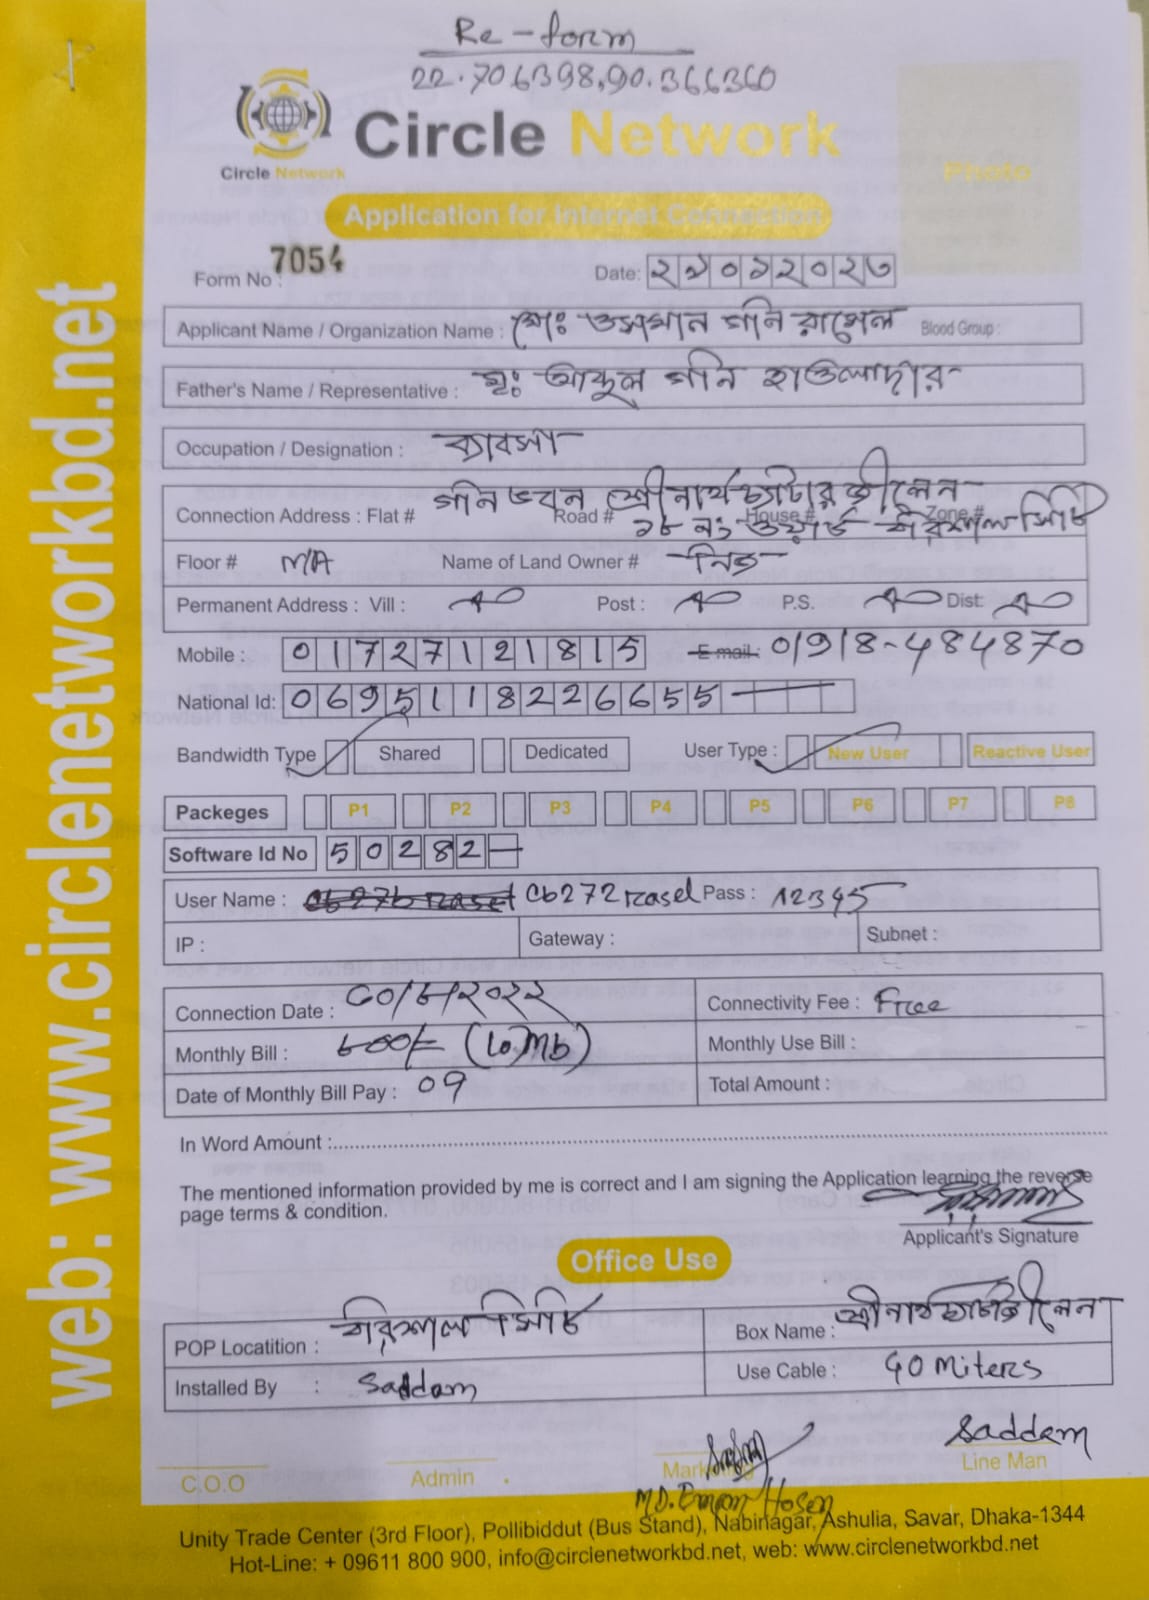 Re-form
22.706398,90.366360
Circle Network
Circle Network
Photo
Application for Internet Connection
Form No : 7054
Date: ২৯০১২০২৩
Applicant Name / Organization Name : মোঃ ওসমান গনি রাসেল Blood Group :
Father's Name / Representative : মৃঃ আব্দুল গনি হাওলাদার
Occupation / Designation : ব্যাবসা
Connection Address : Flat # গনি ভবন শ্রীনাথ চ্যাটার্জী লেন
Road # House # Zone #
১৮ নং ওয়ার্ড বরিশাল সিটি
Floor # N/A Name of Land Owner # নিজ
Permanent Address : Vill : Post : P.S. Dist:
Mobile : 01727121815 E-mail : 01918-484870
National Id: 0695118226655
Bandwidth Type Shared Dedicated User Type : New User Reactive User
Packeges P1 P2 P3 P4 P5 P6 P7 P8
Software Id No 50282
User Name : cb272rasel Pass : 12345
IP : Gateway : Subnet :
Connection Date : Connectivity Fee : Free
Monthly Bill : (10Mb) Monthly Use Bill :
Date of Monthly Bill Pay : 09 Total Amount :
In Word Amount :
The mentioned information provided by me is correct and I am signing the Application learning the reverse
page terms & condition.
Applicant's Signature
Office Use
POP Locatition : বরিশাল সিটি Box Name : শ্রীনাথ চ্যাটার্জী লেন
Installed By : Saddam Use Cable : 90 Miters
Saddam
C.O.O Admin Marketing Line Man
MD. Eman Hosen
Unity Trade Center (3rd Floor), Pollibiddut (Bus Stand), Nabinagar, Ashulia, Savar, Dhaka-1344
Hot-Line: + 09611 800 900, info@circlenetworkbd.net, web: www.circlenetworkbd.net
web: www.circlenetworkbd.net